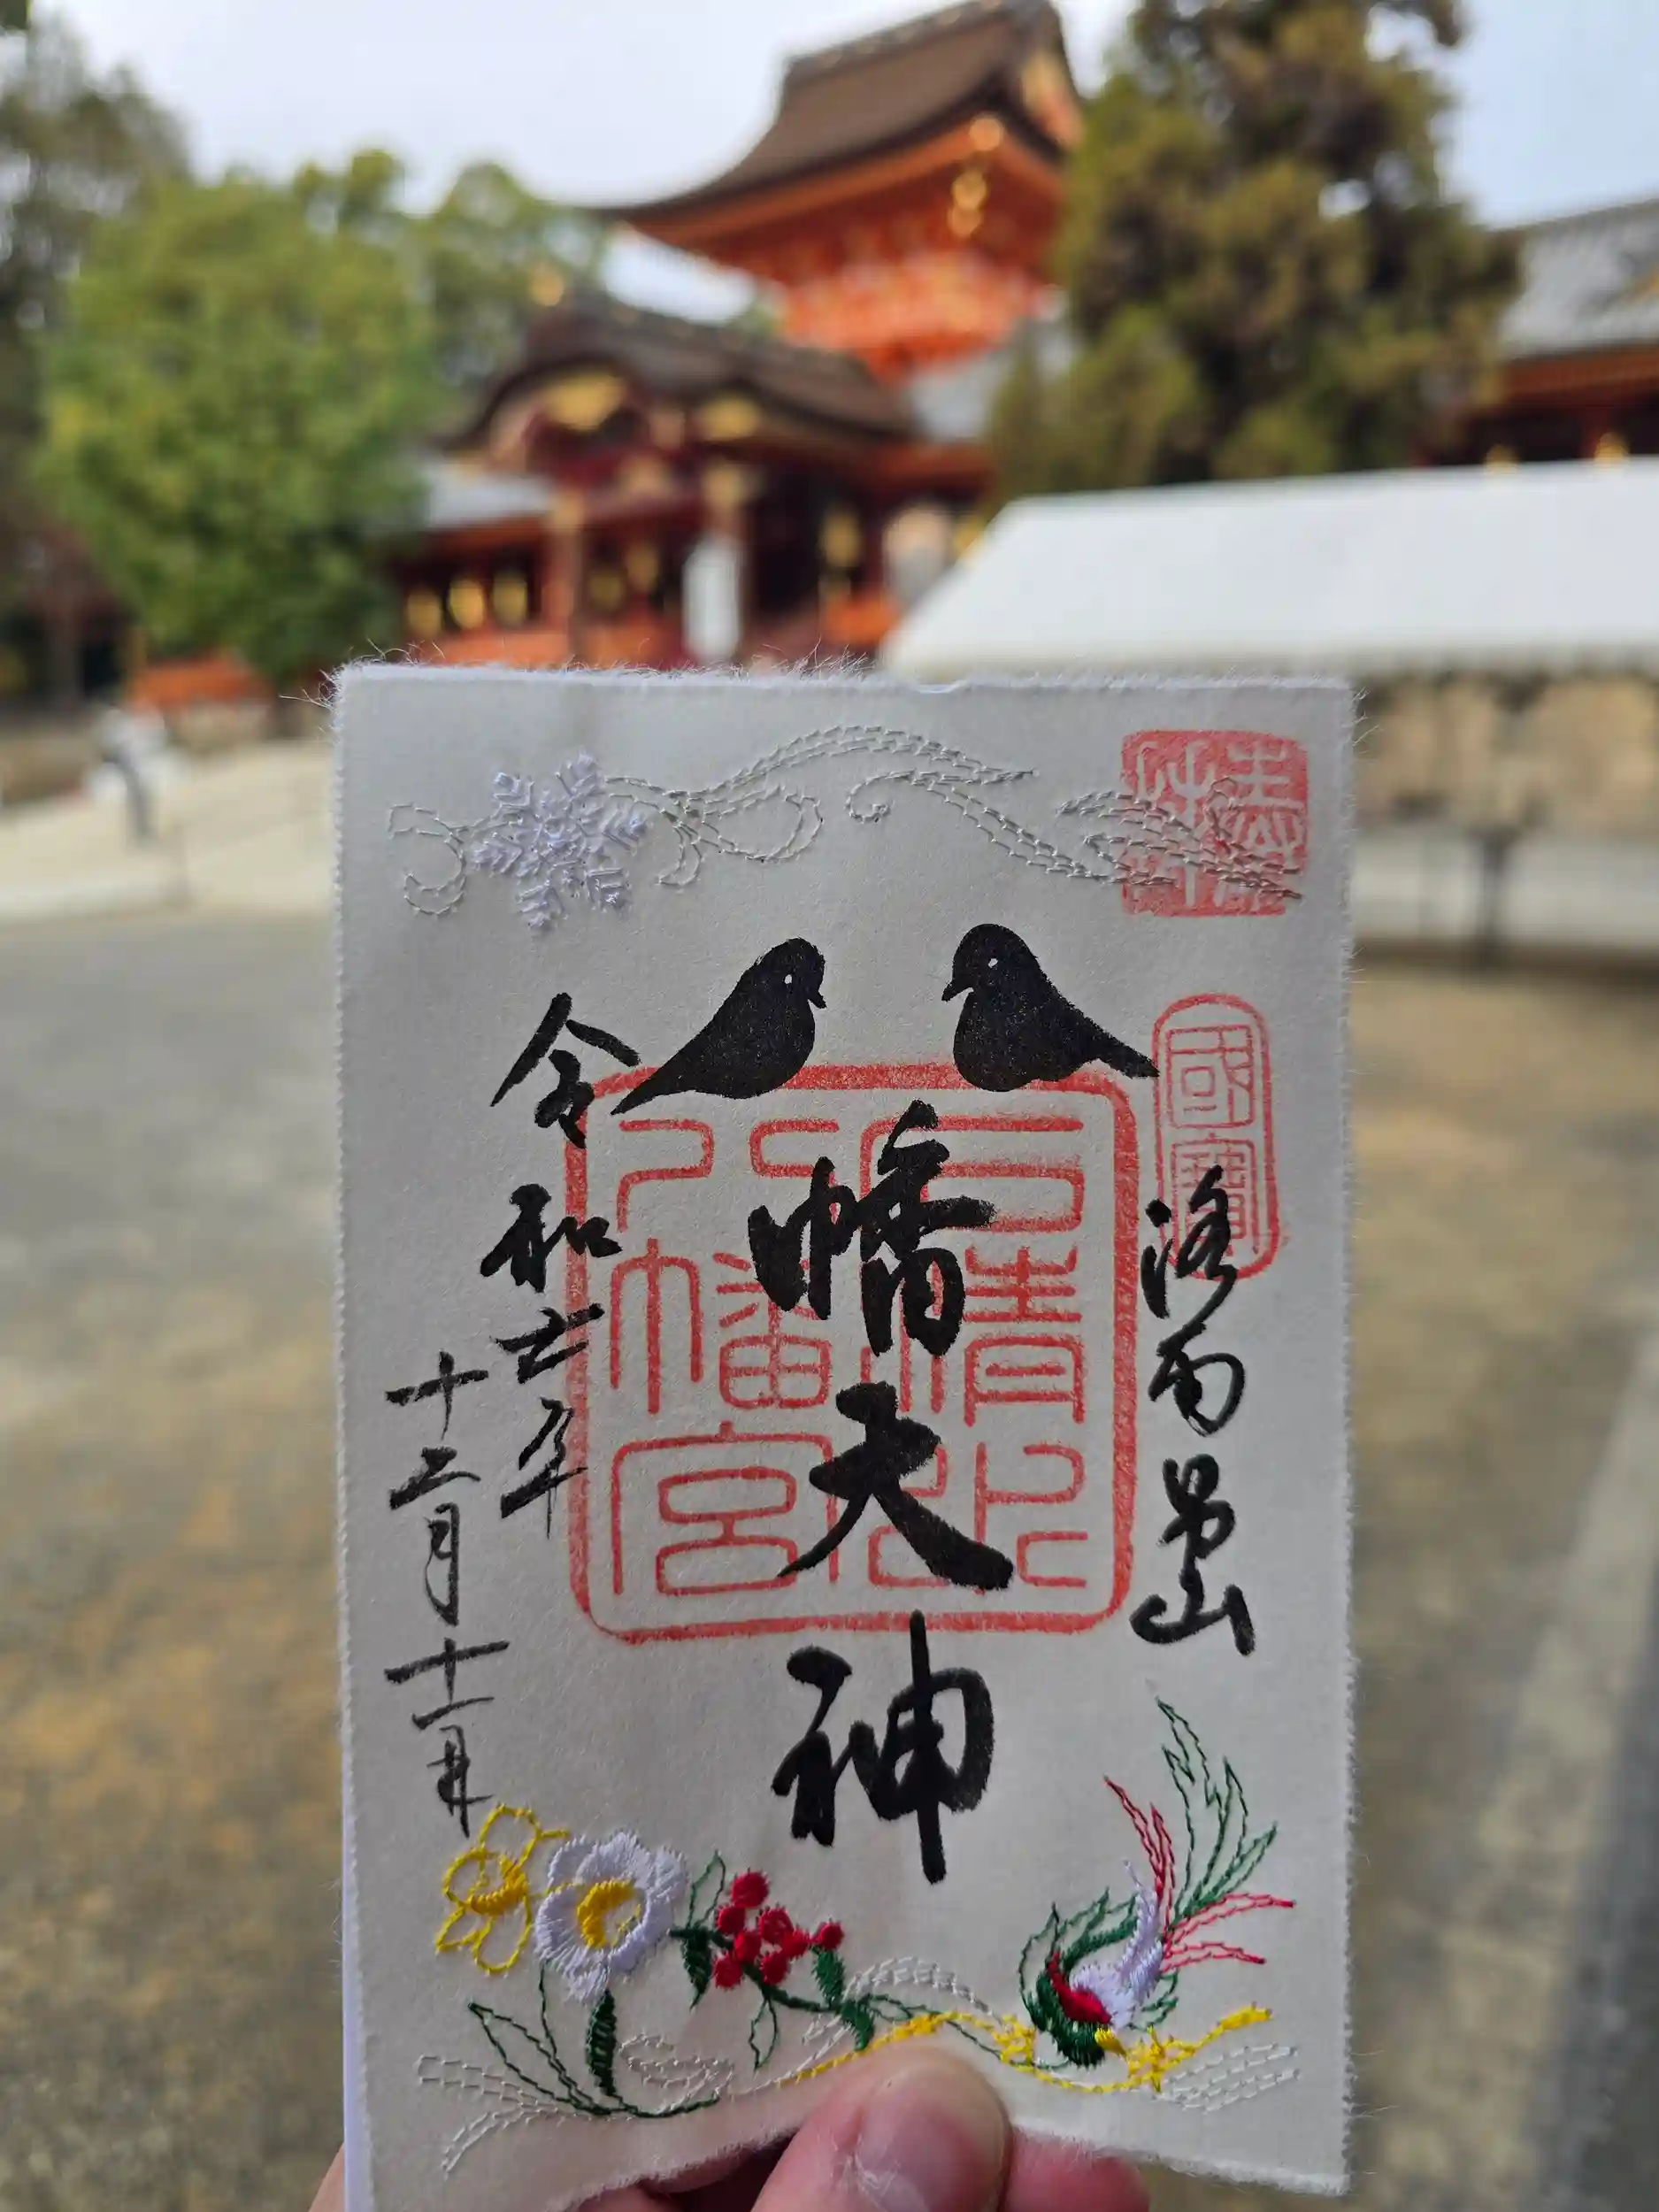 奉拝
國寶
洛南男山
幡大神
石清水
八幡宮
令和七年
十二月十一日